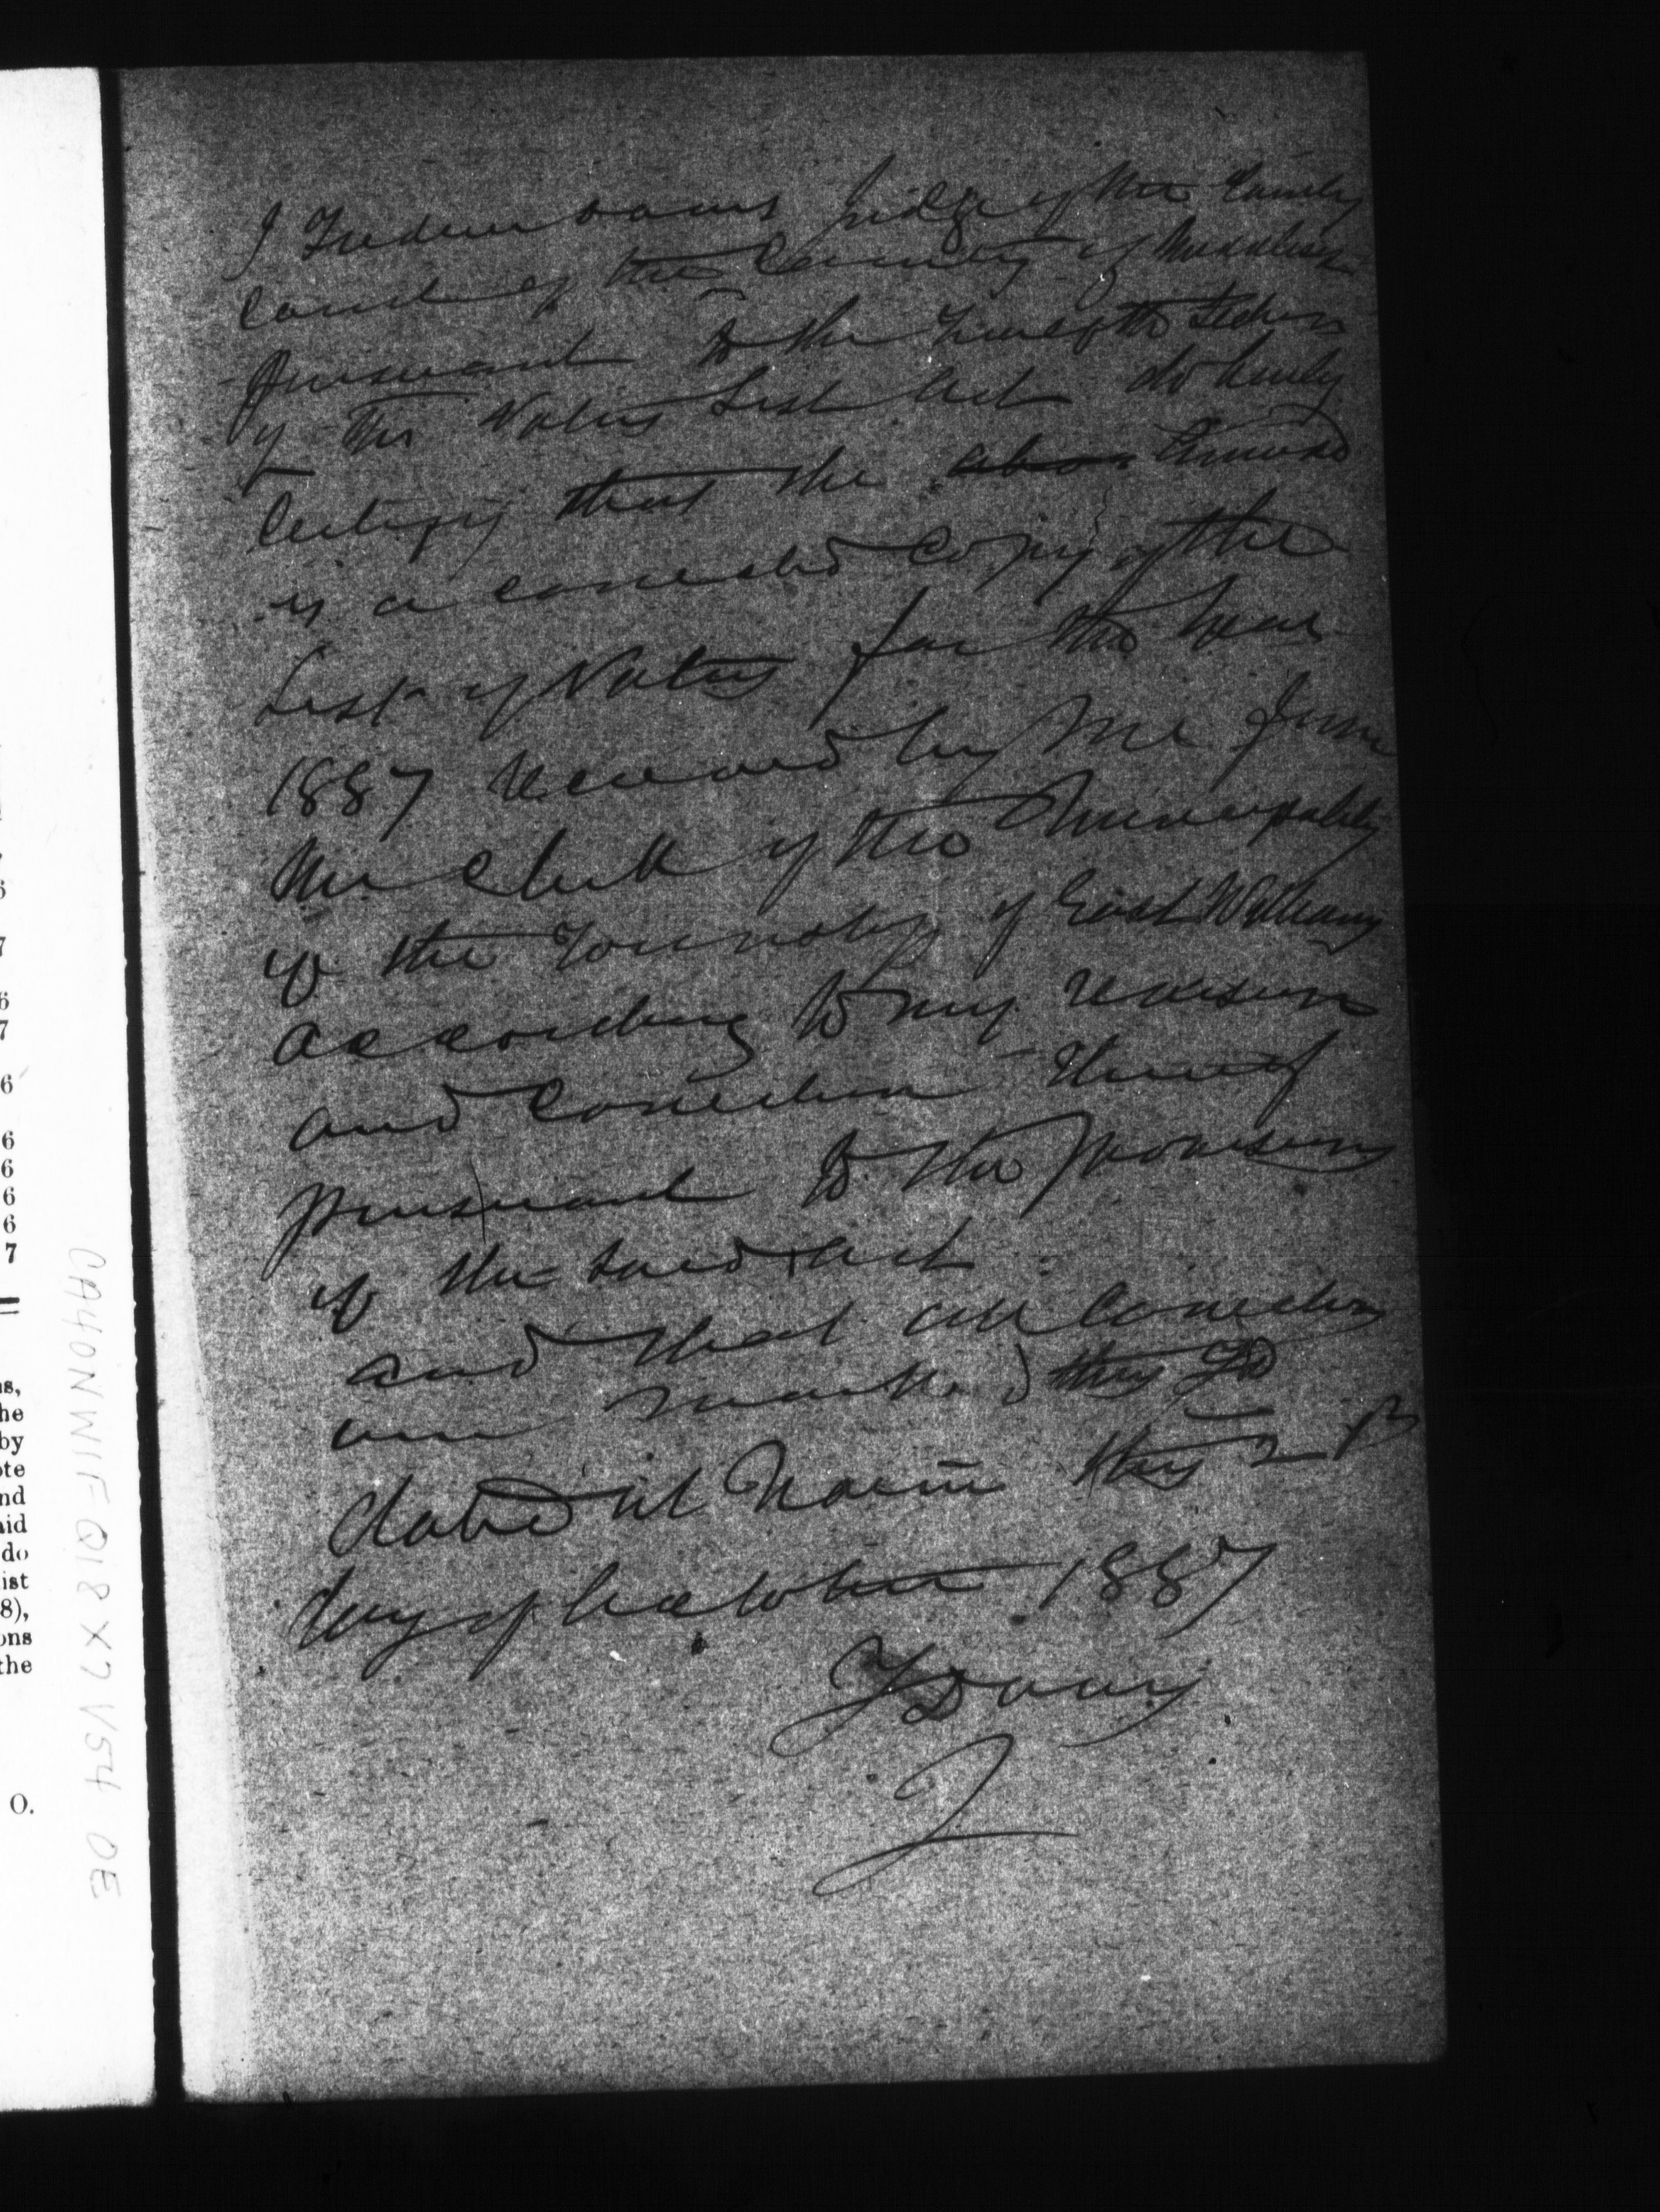 I Frederic Davis Judge of the County
Court of the County of Middlesex
pursuant to the Twelfth Section
of the Voters List Act do hereby
Certify that the above annexed
is a corrected Copy of the
List of Voters for the Year
1887 received by me from
the Clerk of the Municipality
of the Township of East Williams
according to my revision
and correction thereof
pursuant to the provisions
of the said Act
and that all corrections
are marked thus FD
dated at this
day of October 1887
FDavis
J
6
7
6
7
6
6
6
6
6
7
he
by
nd
do
ist
8),
ons
the
O.
CA4ONWIFQ18X7V54 DE